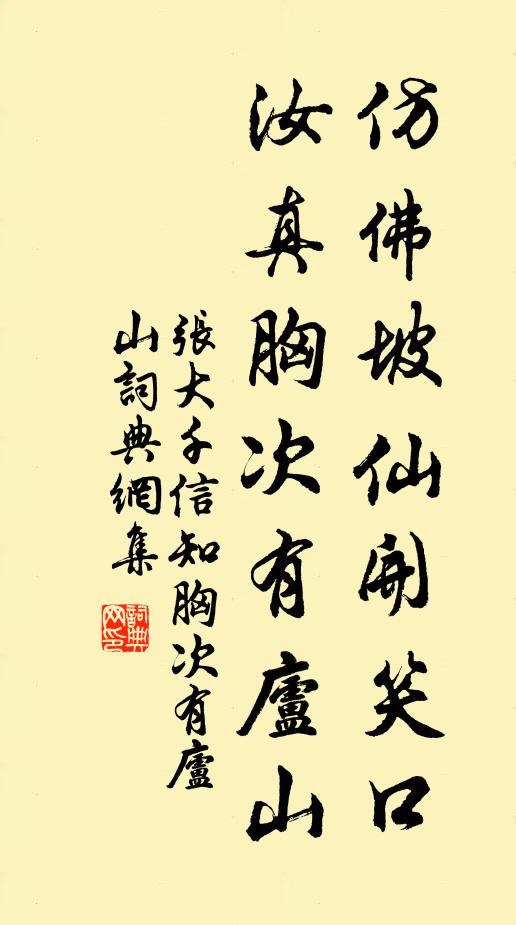 仿佛坡仙開笑口
汝真胸次有廬山
張大千信知胸次有廬
山詞典網集
詞典
网印